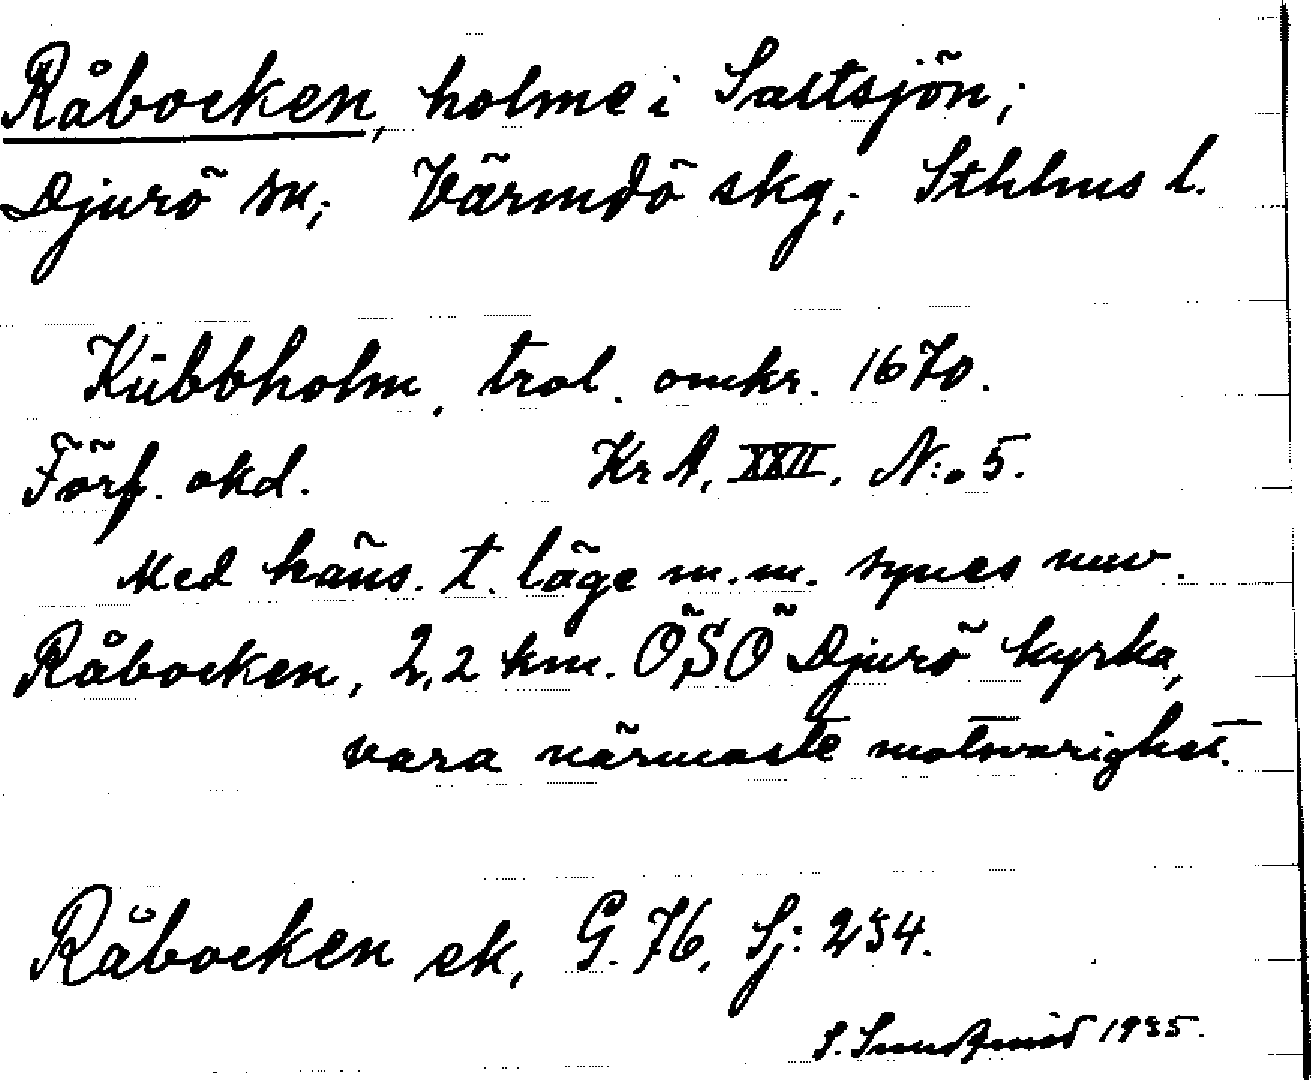 Råbocken, holme i Saltsjön;
Djurö sn; Värmdö skg; Sthlms l.
Kübbholm, trol. omkr. 1670.
Förf. okd. Kr A, XXII, N:o 5.
Med häns. t. läge m.m. synes nuv.
Råbocken, 2,2 km. ÖSÖ Djurö kyrka,
vara närmaste motsvarighet.
Råbocken ek, G. 76, Sj: 234.
S. 1935.